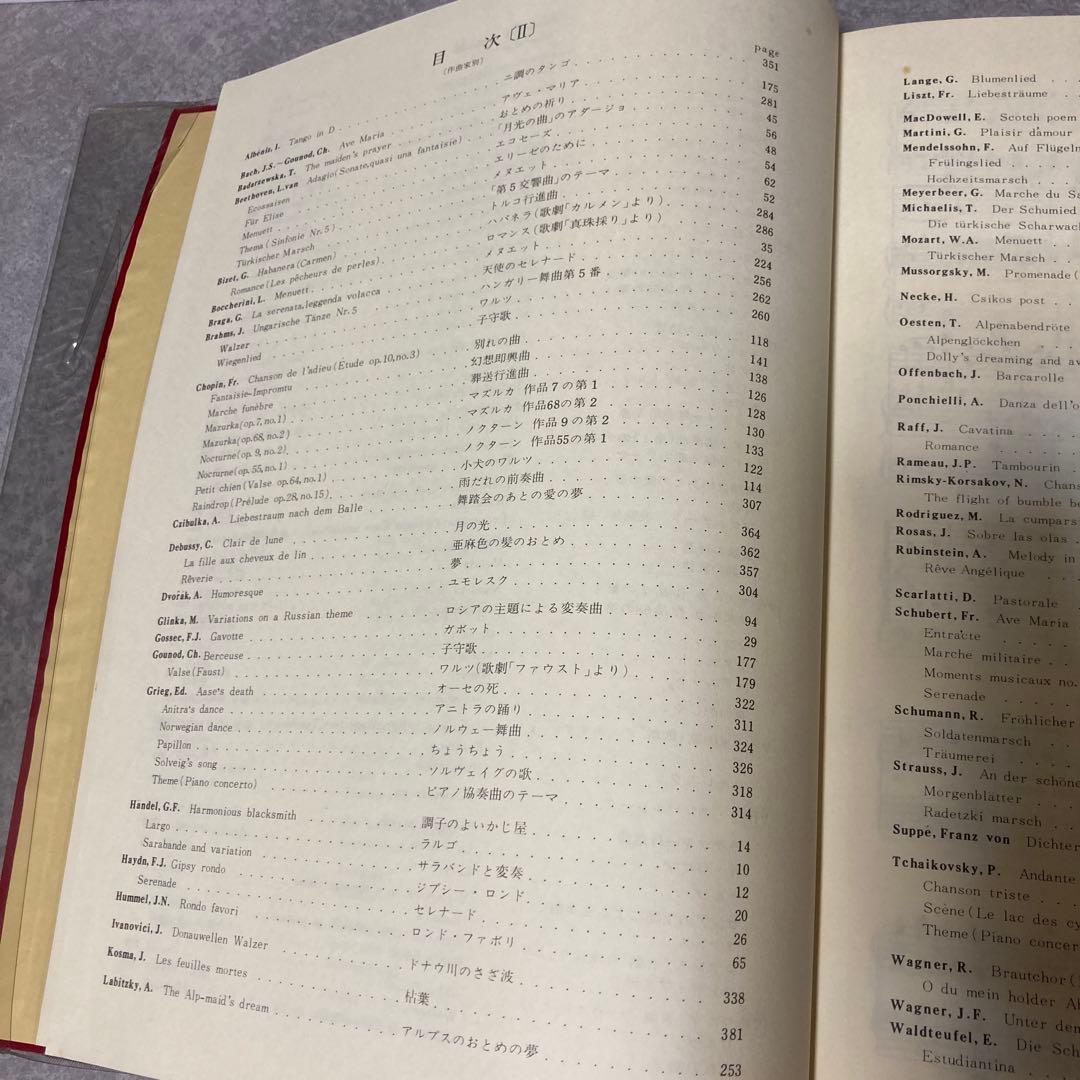 目次〔II〕
(作曲家別)
page
Albéniz, I. Tango in D ニ調のタンゴ 351
Bach, J.S.–Gounod, Ch. Ave Maria アヴェ・マリア 175
Badarzewska, T. The maiden's prayer おとめの祈り 281
Beethoven, L.van Adagio(Sonate,quasi una fantaisie) 「月光の曲」のアダージョ 45
Ecossaisen エコセーズ 56
Für Elise エリーゼのために 48
Menuett メヌエット 54
Thema(Sinfonie Nr.5) 「第5交響曲」のテーマ 62
Türkischer Marsch トルコ行進曲 52
Bizet, G. Habanera(Carmen) ハバネラ(歌劇「カルメン」より) 284
Romance(Les pêcheurs de perles) ロマンス(歌劇「真珠採り」より) 286
Boccherini, L. Menuett メヌエット 35
Braga, G. La serenata,leggenda volacca 天使のセレナード 224
Brahms, J. Ungarische Tänze Nr.5 ハンガリー舞曲第5番 256
Walzer ワルツ 262
Wiegenlied 子守歌 260
Chopin, Fr. Chanson de l'adieu(Etude op.10,no.3) 別れの曲 118
Fantaisie-Impromtu 幻想即興曲 141
Marche funèbre 葬送行進曲 138
Mazurka(op.7,no.1) マズルカ 作品7の第1 126
Mazurka(op.68,no.2) マズルカ 作品68の第2 128
Nocturne(op.9,no.2) ノクターン 作品9の第2 130
Nocturne(op.55,no.1) ノクターン 作品55の第1 133
Petit chien(Valse op.64,no.1) 小犬のワルツ 122
Raindrop(Prélude op.28,no.15) 雨だれの前奏曲 114
Czibulka, A. Liebestraum nach dem Balle 舞踏会のあとの愛の夢 307
Debussy, C. Clair de lune 月の光 364
La fille aux cheveux de lin 亜麻色の髪のおとめ 362
Rêverie 夢 357
Dvořák, A. Humoresque ユモレスク 304
Glinka, M. Variations on a Russian theme ロシアの主題による変奏曲 94
Gossec, F.J. Gavotte ガボット 29
Gounod, Ch. Berceuse 子守歌 177
Valse(Faust) ワルツ(歌劇「ファウスト」より) 179
Grieg, Ed. Aase's death オーセの死 322
Anitra's dance アニトラの踊り 311
Norwegian dance ノルウェー舞曲 324
Papillon ちょうちょう 326
Solveig's song ソルヴェイグの歌 318
Theme(Piano concerto) ピアノ協奏曲のテーマ 314
Handel, G.F. Harmonious blacksmith 調子のよいかじ屋 14
Largo ラルゴ 10
Sarabande and variation サラバンドと変奏 12
Haydn, F.J. Gipsy rondo ジプシー・ロンド 20
Serenade セレナード 26
Hummel, J.N. Rondo favori ロンド・ファボリ 65
Ivanovici, J. Donauwellen Walzer ドナウ川のさざ波 338
Kosma, J. Les feuilles mortes 枯葉 381
Labitzky, A. The Alp-maid's dream アルプスのおとめの夢 253
Lange, G. Blumenlied
Liszt, Fr. Liebesträume
MacDowell, E. Scotch poem
Martini, G. Plaisir d'amour
Mendelssohn, F. Auf Flügeln
Frülingslied
Hochzeitsmarsch
Meyerbeer, G. Marche du
Michaelis, T. Der Schumied
Die türkische
Mozart, W.A. Menuett
Türkischer Marsch
Mussorgsky, M. Promenade(
Necke, H. Csikos post
Oesten, T. Alpenabendröte
Alpenglöckchen
Dolly's dreaming and
Offenbach, J. Barcarolle
Ponchielli, A. Danza
Raff, J. Cavatina
Romance
Rameau, J.P. Tambourin
Rimsky-Korsakov, N.
The flight of bumble
Rodriguez, M. La
Rosas, J. Sobre las olas
Rubinstein, A. Melody in
Rêve Angélique
Scarlatti, D. Pastorale
Schubert, Fr. Ave Maria
Entra'cte
Marche militaire
Moments musicaux no.
Serenade
Schumann, R. Fröhlicher
Soldatenmarsch
Träumerei
Strauss, J. An der
Morgenblätter
Radetzki marsch
Suppé, Franz von
Tchaikovsky, P. Andante
Chanson triste
Scène(Le lac des
Theme(Piano
Wagner, R. Brautchor(
O du mein holder
Wagner, J.F. Unter
Waldteufel, E. Die
Estudiantina